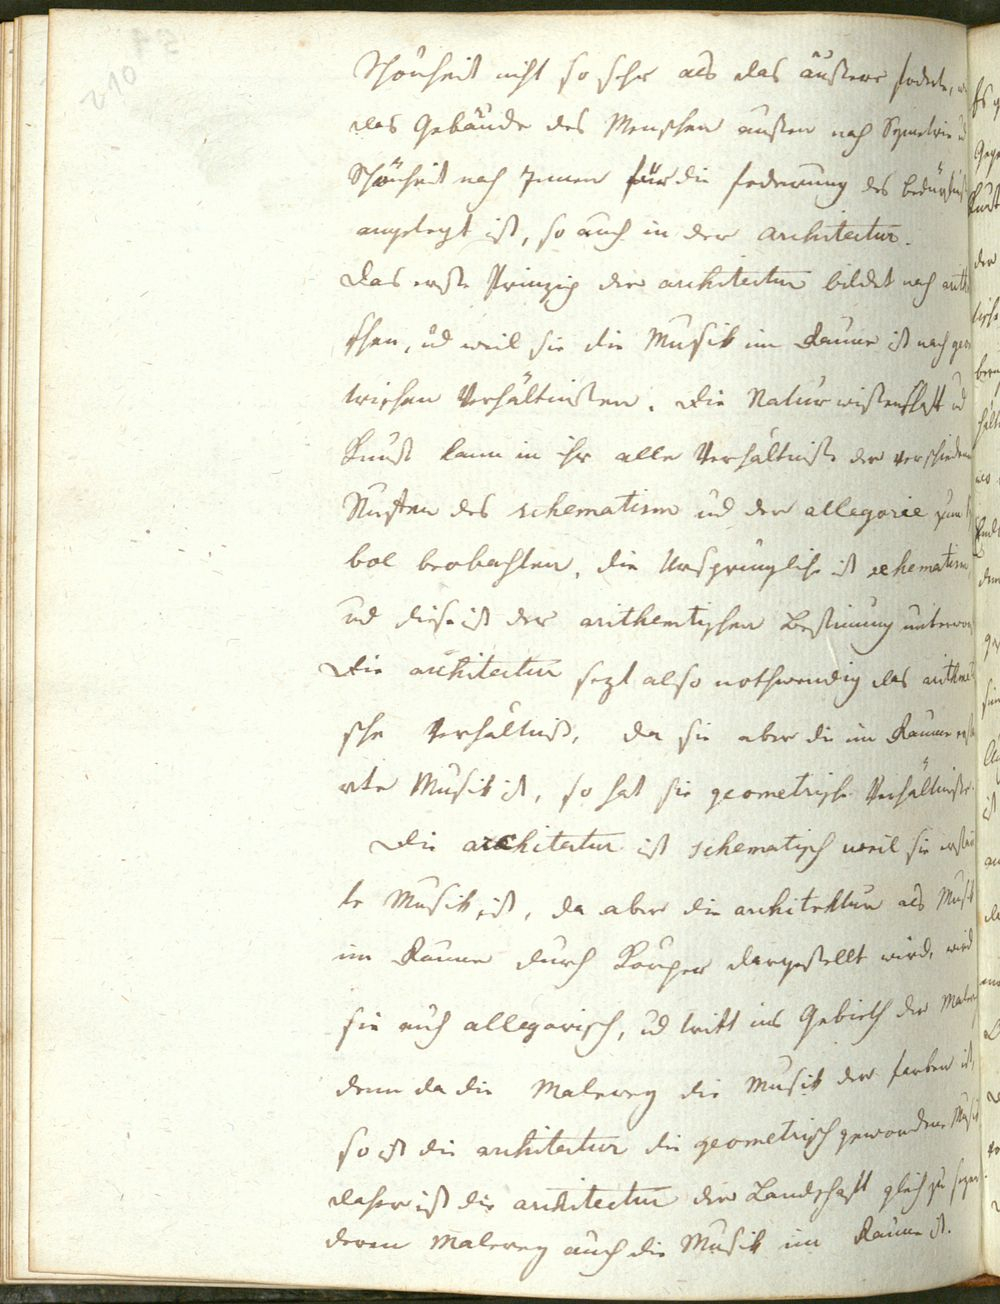 Schönheit nicht so sehr als das äußere fodert,
das Gebäude des Menschen außen nach Symetrie ud
Schönheit nach Innen für die foderung des bedürfniß
angelegt ist, so auch in der architectur.
das erste Prinzip der architectur bildet nach arith
schen, ud weil sie die Musik im Raume ist nach geo
trischen Verhältnißen. Die Naturwißenschaft ud
Kunst kann in ihr alle Verhältniße der verschieden
Stuffen des schematism ud der allegorie zum
bol beobachten, die Ursprüngliche ist schematism
ud diese ist der arithemtischen Bestimung unterwor
Die architectur sezt also nothwendig das arithme
sche Verhältniß, da sie aber die im Raume erstar
rte Musik ist, so hat sie geometrische Verhältniße.
Die architectur ist schematisch weil sie erstarr
te Musik ist, da aber die architektur als Musik
im Raume durch Körper dargestellt wird, wird
sie auch allegorisch, ud tritt ins Gebieth der Maler
denn da die Malerey die Musik der farben ist,
so ist die architectur die geometrisch gewordene Musik
daher ist die architectur der Landschaft gleich zu sezen
deren Malerey auch die Musik im Raume ist.
210